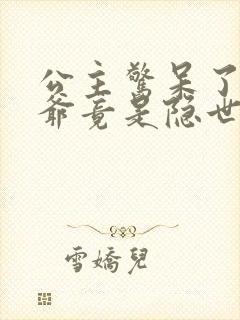 公主驚呆了
爺竟是隐世
雪嬌兒